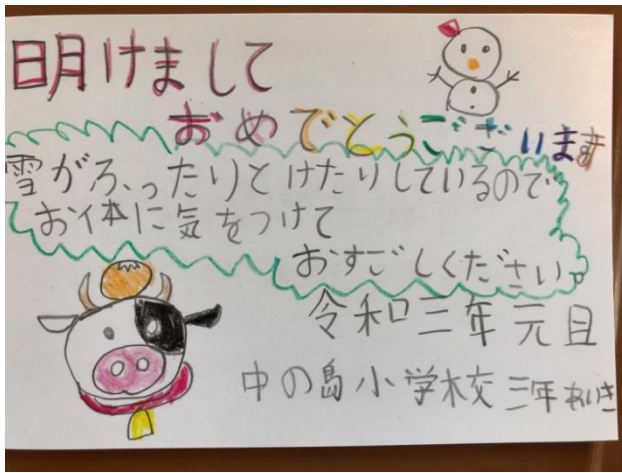 明けまして
おめでとうございます
雪がふったりとけたりしているので
お体に気をつけて
おすごしください。
令和三年元旦
中の島小学校三年